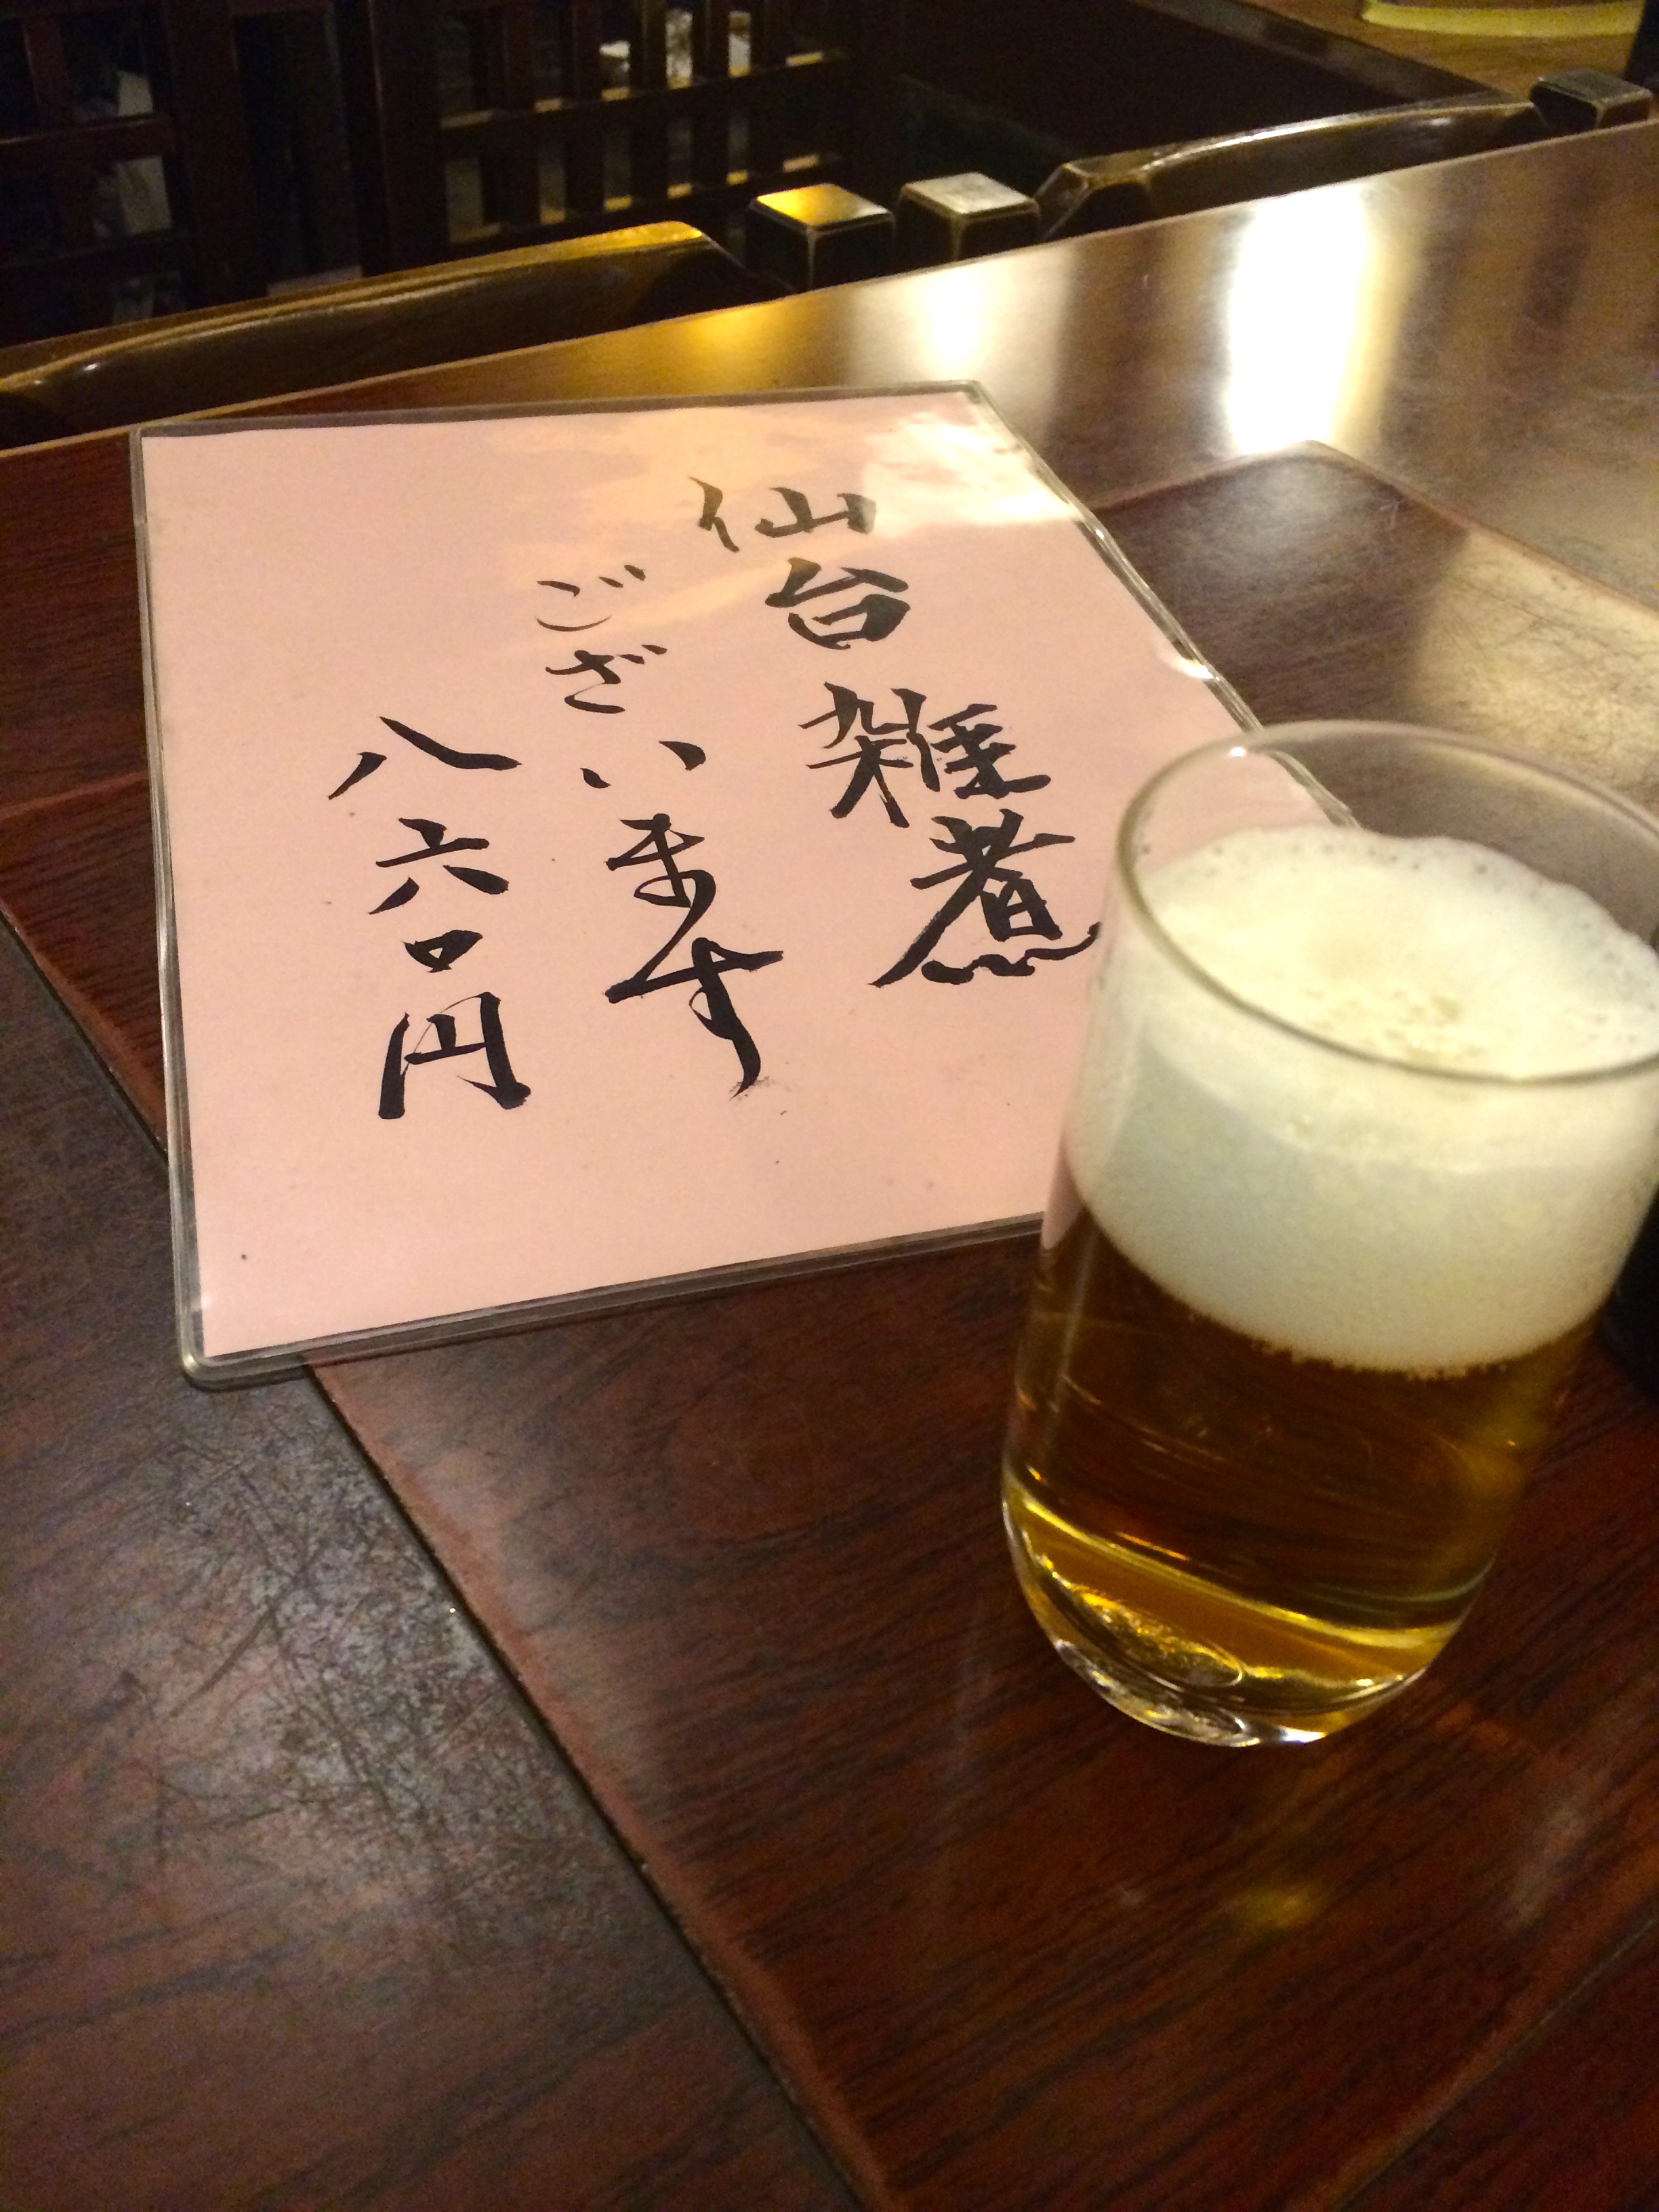 仙台雑煮
ございます
八六〇円